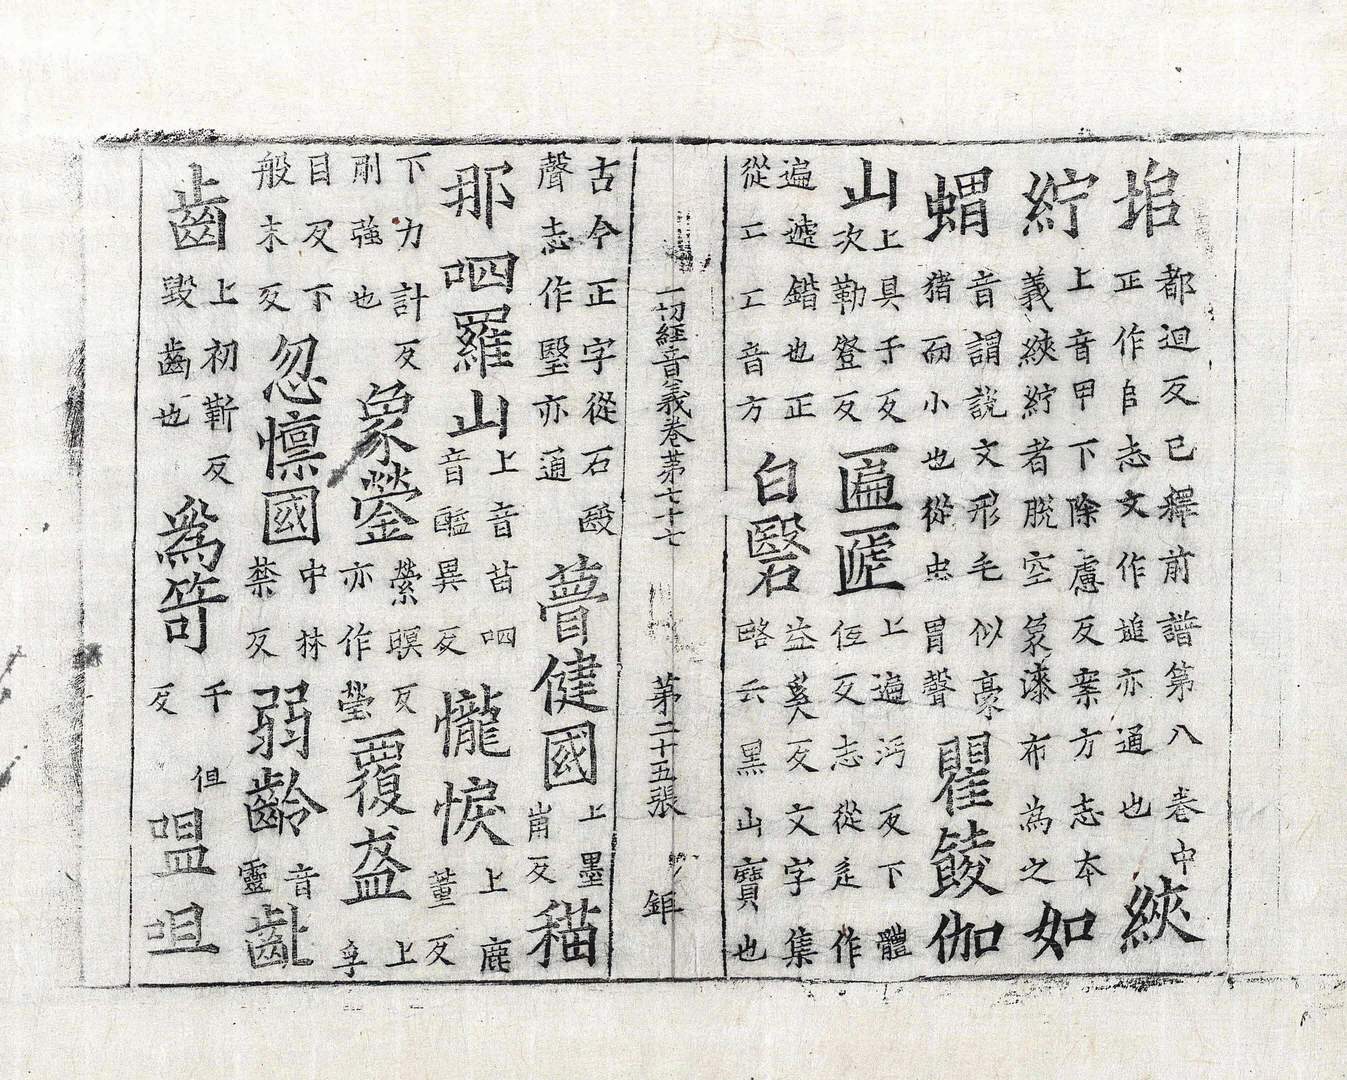 垖都迴反已釋前譜第八卷中正作𠂤志文作塠亦通也綊
紵上音甲下除慮反案方志本義綊紵者脫空象漆布為之如
蝟音謂說文形毛似豪猪而小也從虫胃聲瞿餕伽
山上具于反次勒登反匾㔸上遍沔反下體伍反志從辵作
遍遞錯也正從匚匚音方白毉益奚反文字集略云黑山寶也
一切經音義卷第七十七 第二十五張 鉅
古今正字從石殹聲志作堅亦通瞢健國上墨崩反
那呬羅山上音苗呬音醯異反㦬悷上鹿董反
下力計反剛強也象鎣縈瞑反亦作瑩覆盆上孚
目反下般末反忽懍國中林禁反弱齡音靈齔
齒上初靳反毀齒也為笴千但反